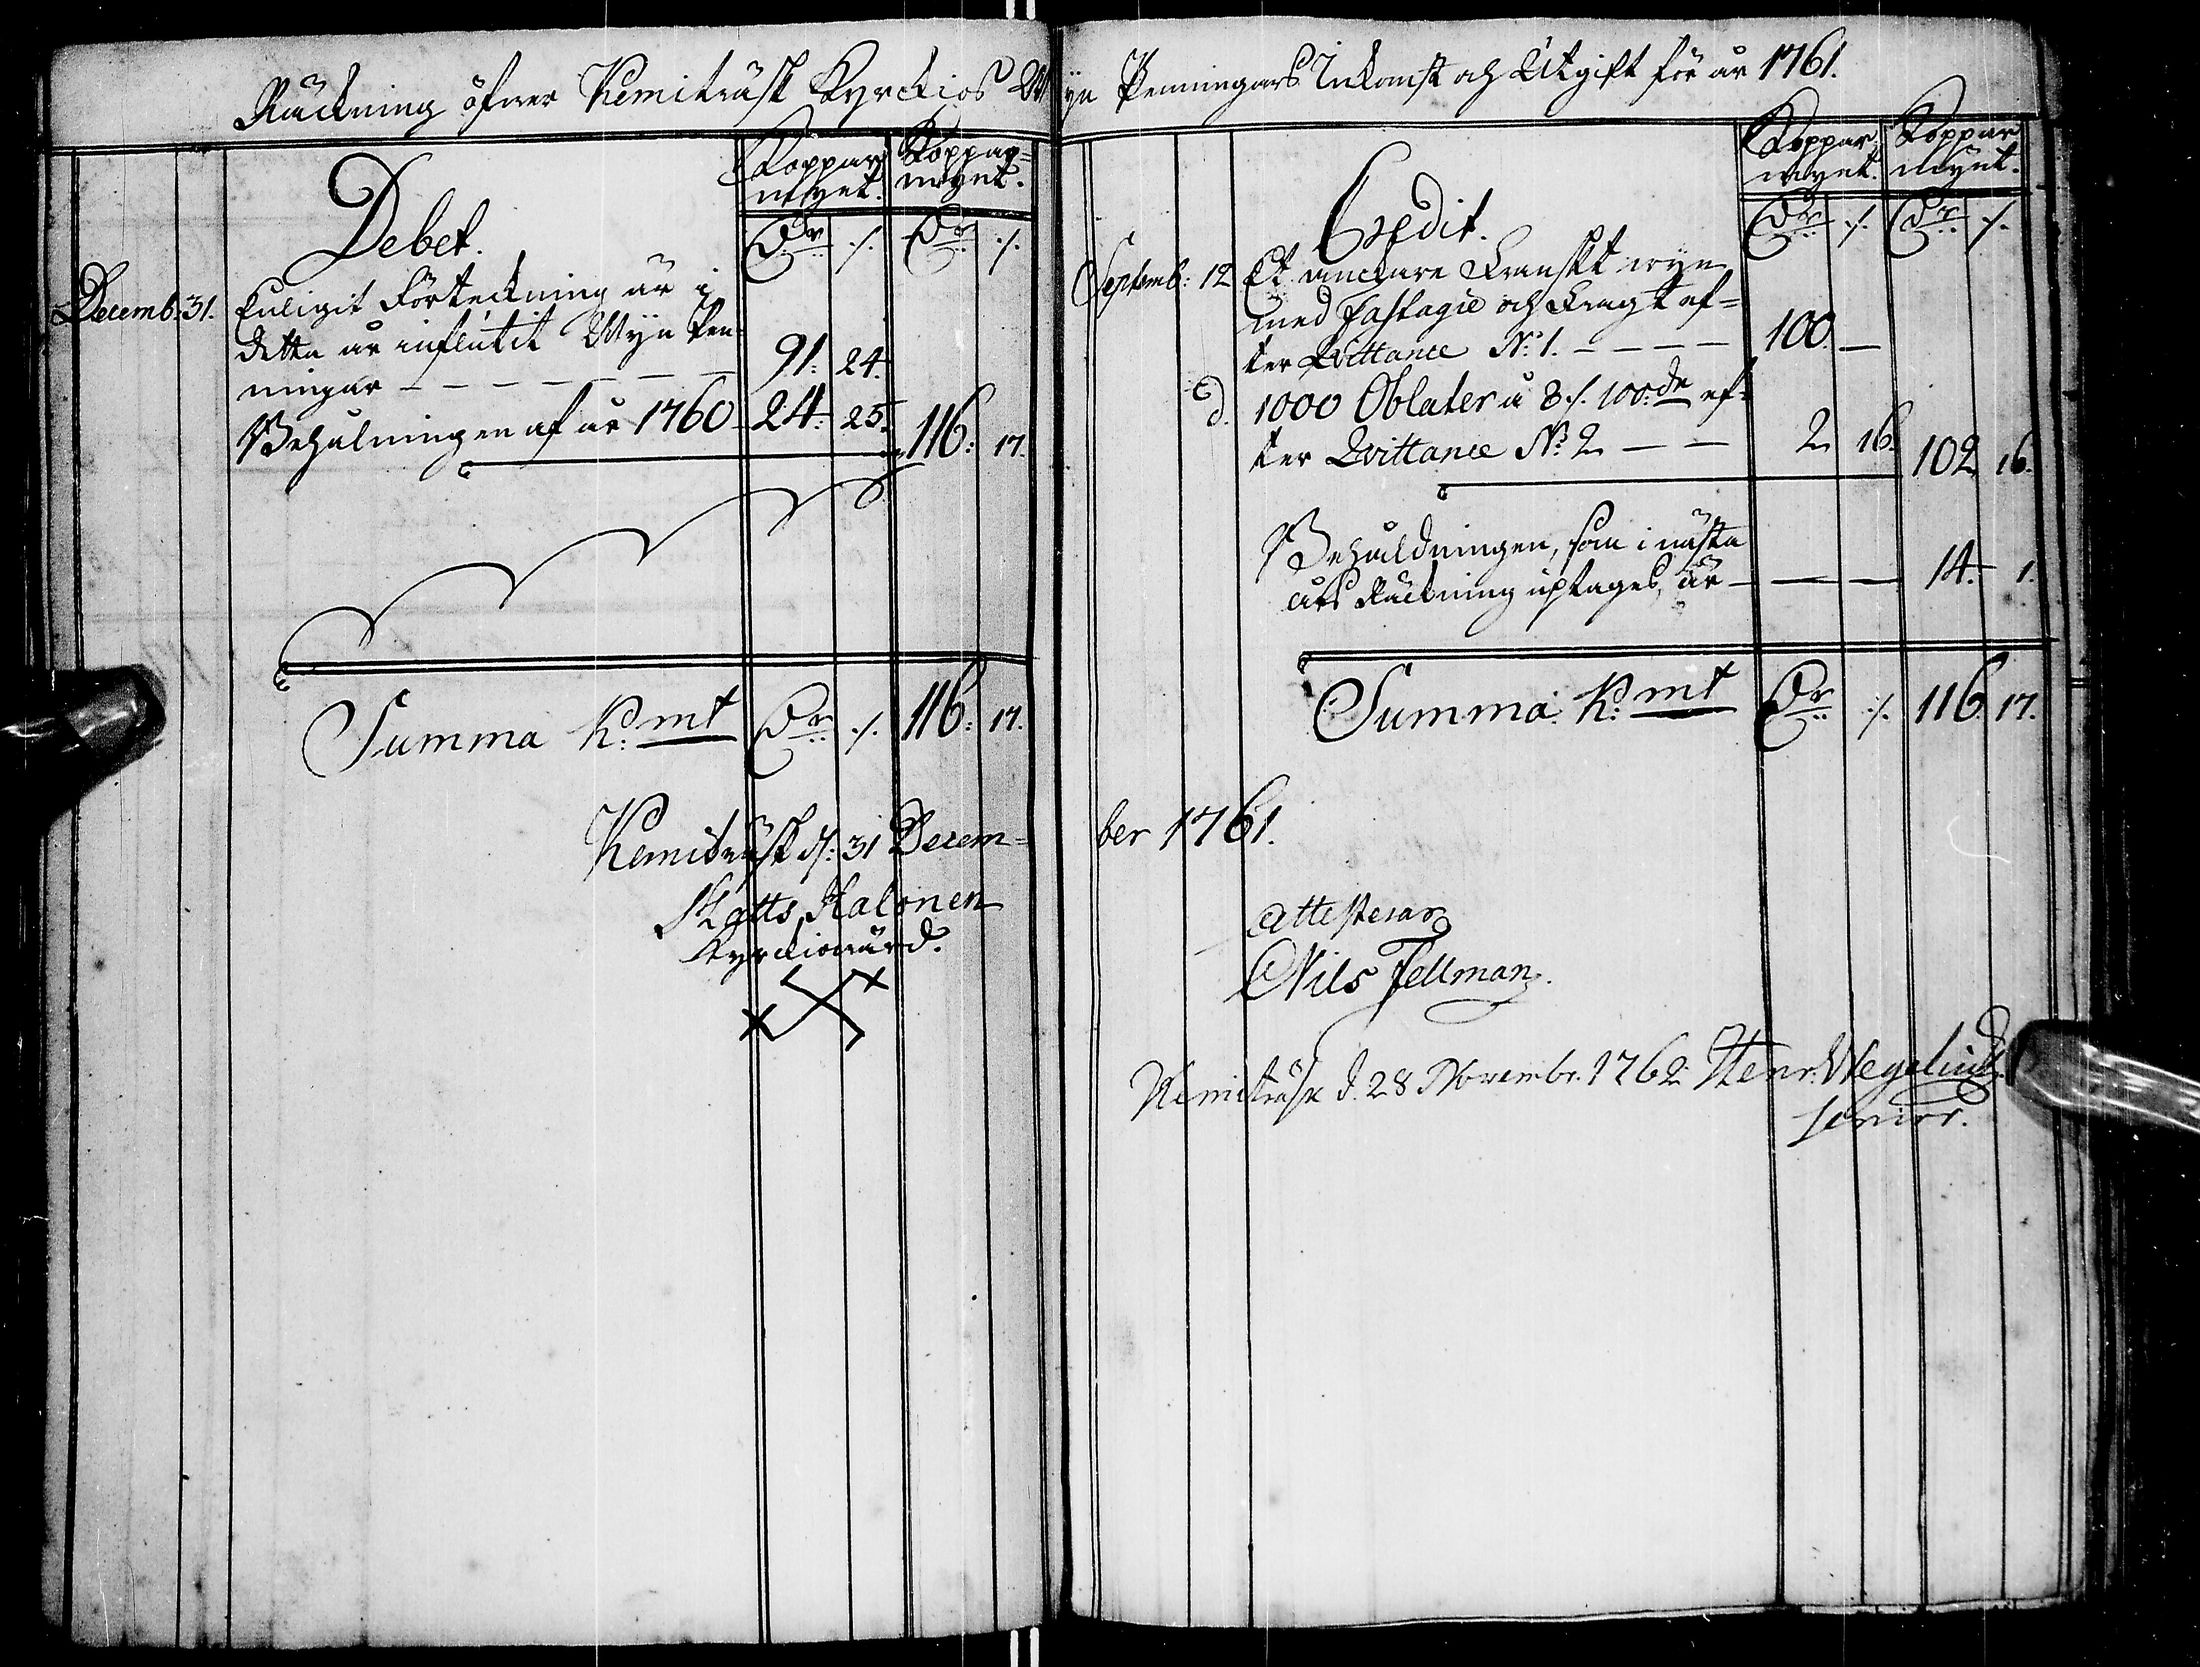 Räckning öfwer Kemiträsk Kyrckios Wyn Penningars Inkomst och Utgift för år 1761.
Koppar mynt. Koppar= mynt.
Debet.
Dr ./. Dr ./.
Decemb. 31. Enligit Förteckning är i
detta år influtit Wyn Pen=
ningar — — — — — — 91: 24.
Behålningen af år 1760 24: 25. 116: 17.
Summa K: mt Dr ./. 116: 17.
Kemiträsk d: 31 Decem=
Matts Halonen
Kyrckiowärd.
Koppar mynt. Koppar mynt.
Credit.
Dr ./. Dr ./.
Septemb: 12 Et anckare Franskt wyn
med Fastagie och Fragt ef=
ter Qvittance No 1. — — — — 100. —
d. 1000 Oblater à 8 ./. 100:de ef=
ter Qvittance No 2 — — 2 16. 102 16.
Behåldningen, som i nästa
års Räckning uptages, är — — — 14. 1.
Summa K: mt Dr ./. 116. 17.
ber 1761.
Attesterar
Nils Fellman.
Kemiträsk d. 28 Novembr. 1762. Henr. Wegelius
senior.